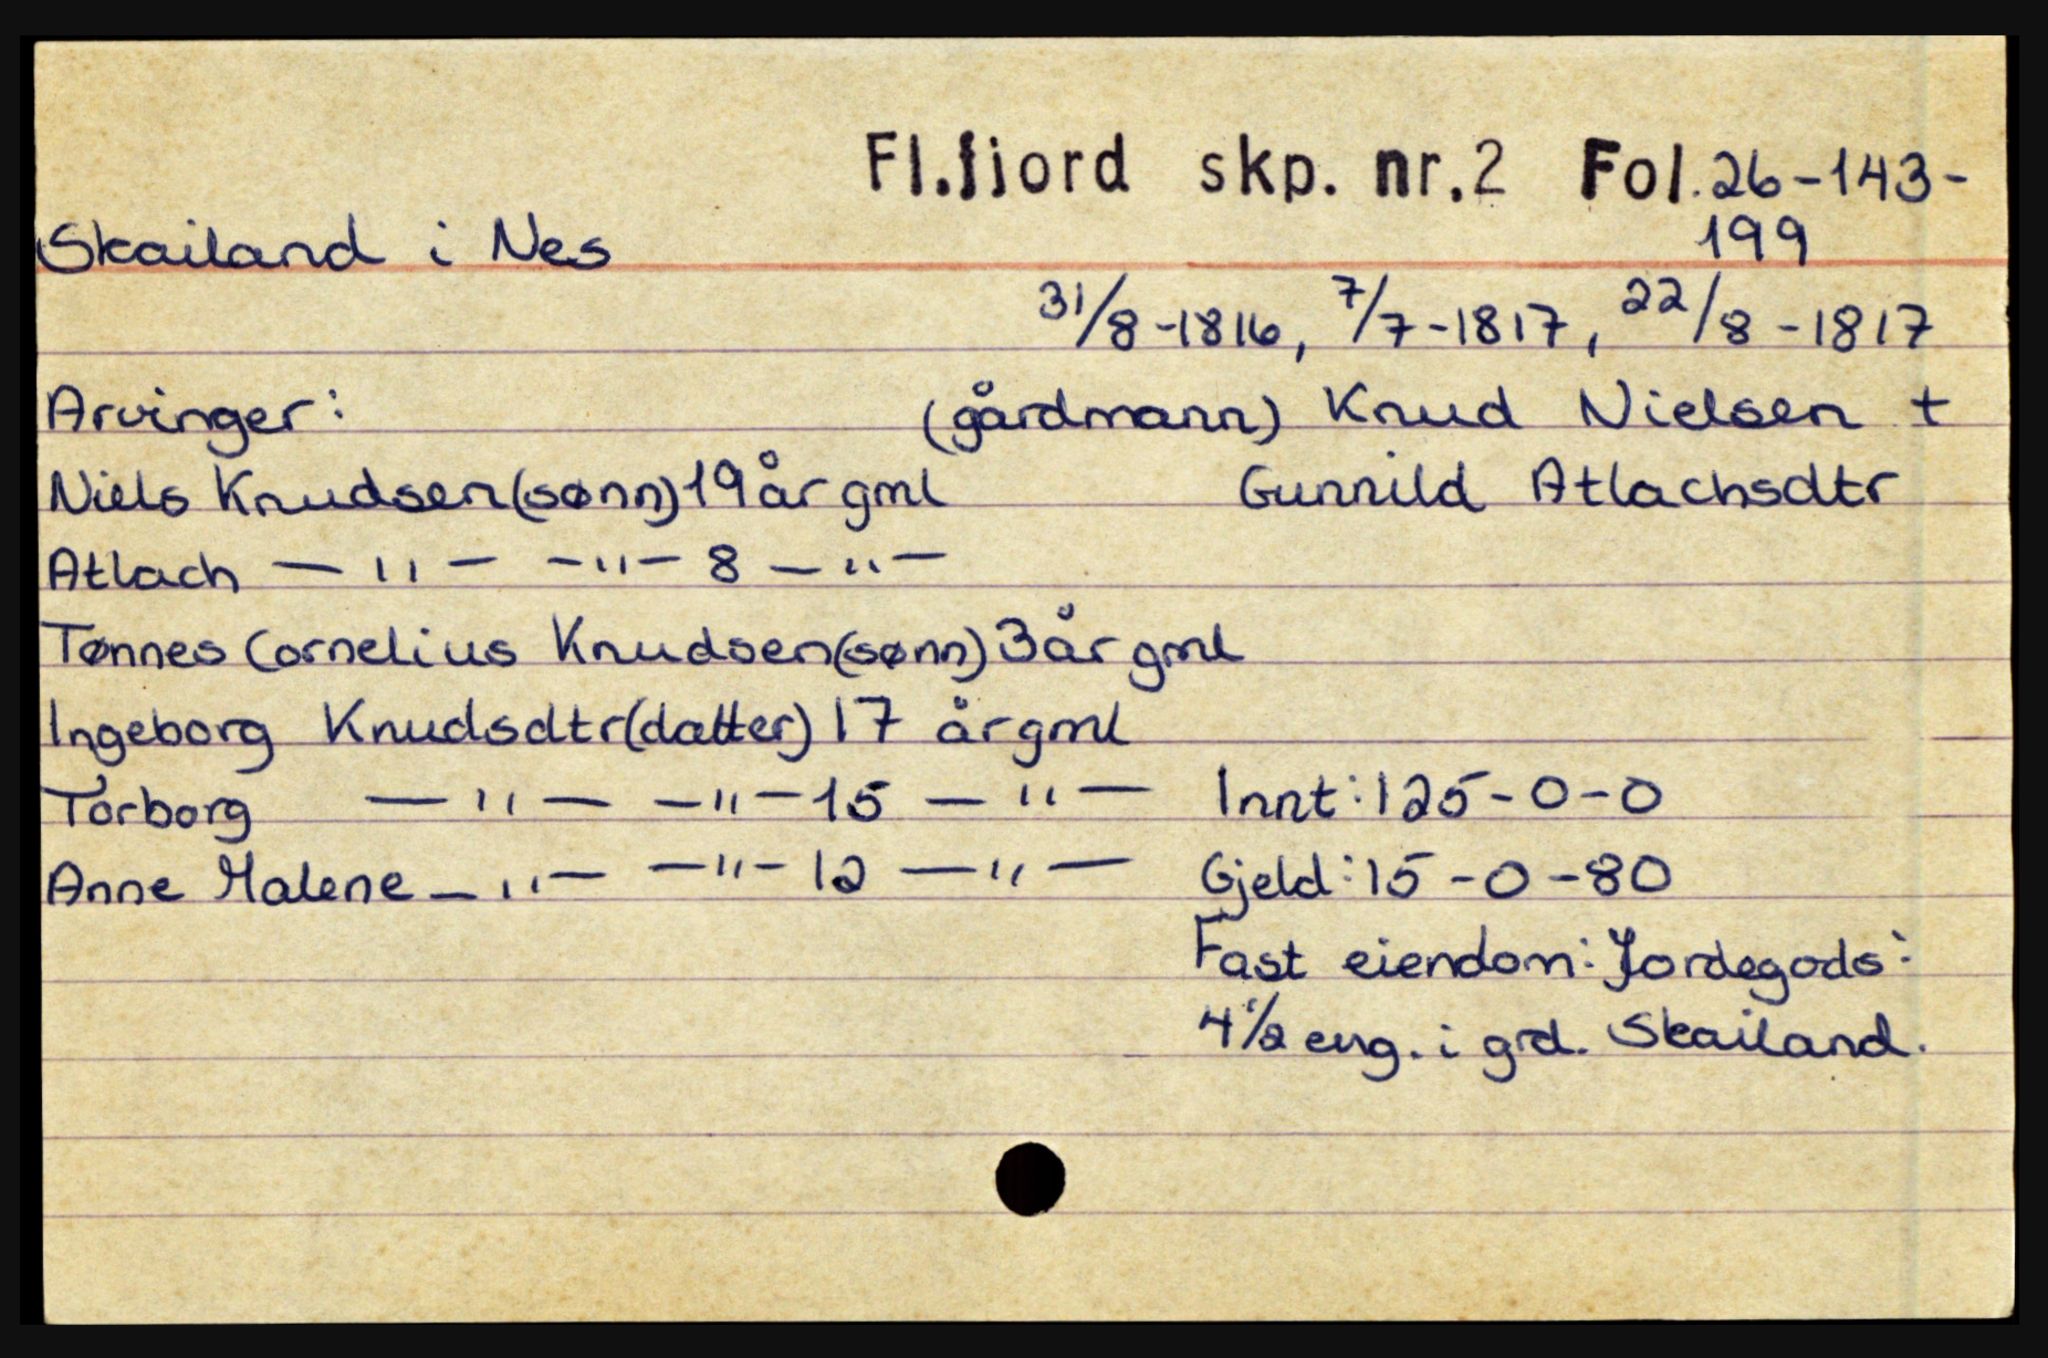 Fl.fjord skp. nr.2 Fol. 26-143-
199
Skailand i Nes
31/8-1816, 7/7-1817, 22/8-1817
Arvinger: (gårdmann) Knud Nielsen +
Niels Knudsen (sønn) 19 år gml Gunnild Atlachsdtr
Atlach — " — — " — 8 — " —
Tønnes Cornelius Knudsen (sønn) 3 år gml
Ingeborg Knudsdtr (datter) 17 år gml
Torborg — " — — " — 15 — " — Innt: 125-0-0
Anne Malene — " — — " — 12 — " — Gjeld: 15-0-80
Fast eiendom: Jordegods:
4 1/2 eng. i grd. Skailand.